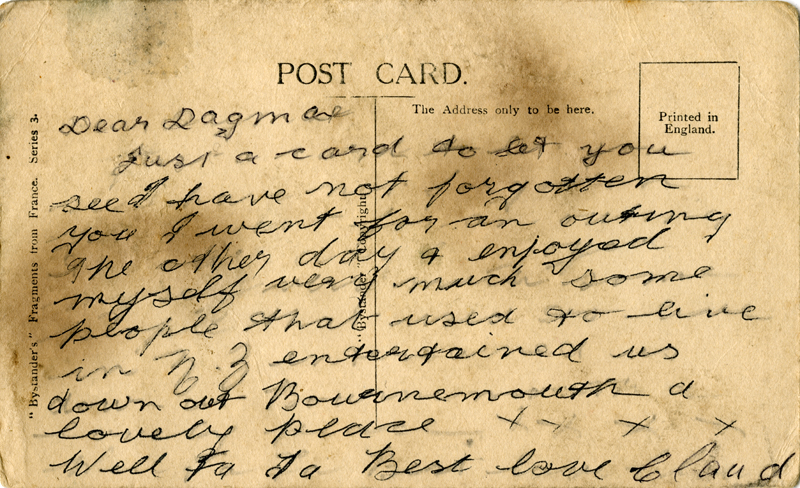 POST CARD.
The Address only to be here.
Printed in
England.
"Bystander's" Fragments from France. Series 3.
"Bystander" Copyright.
Dear Dagmar
Just a card to let you
see I have not forgotten
you I went for an outing
the other day & enjoyed
myself very much some
people that used to live
in N.Z entertained us
down at Bournemouth a
lovely place x x x x
Well Ta Ta Best love Claud